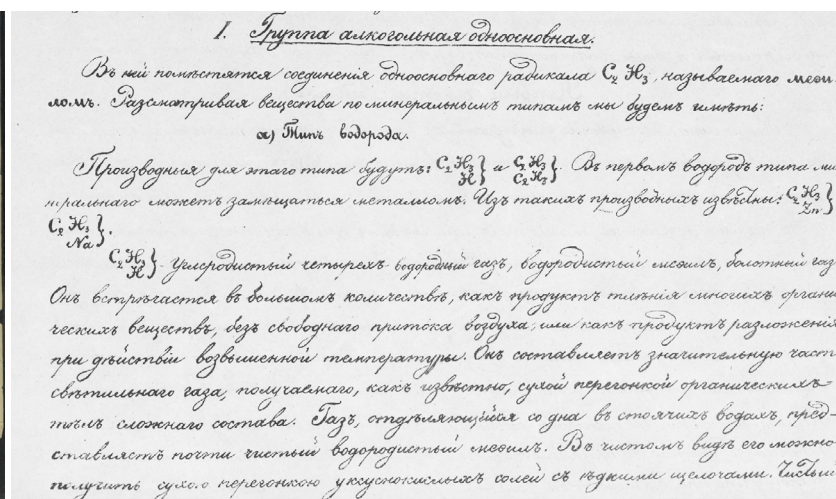 I. Группа алкогольная одноосновная.
Въ ней помѣстятся соединенія одноосновнаго радикала C₂H₃, называемаго меѳи-
ломъ. Разсматривая вещества по минеральнымъ типамъ мы будемъ имѣть:
а) Типъ водорода.
Производныя для этаго типа будутъ: C₂H₃ H} и C₂H₃ C₂H₃}. Въ первомъ водородъ типа ми
неральнаго можетъ замѣщаться металломъ. Изъ такихъ производныхъ извѣстны: C₂H₃ Zn}
C₂H₃ Na}.
C₂H₃ H}. Углеродистый четырех-водородный газъ, водородистый меѳилъ, болотный газъ
Онъ встрѣчается въ большомъ количествѣ, какъ продуктъ тлѣнія многихъ органи
ческихъ веществъ, безъ свободнаго притока воздуха; или какъ продуктъ разложенія
при дѣйствіи возвышенной температуры. Онъ составляетъ значительную часть
свѣтильнаго газа, получаемаго, какъ извѣстно, сухой перегонкой органическихъ
тѣлъ сложнаго состава. Газъ, отдѣляющійся со дна въ стоячихъ водахъ, пред-
ставляетъ почти чистый водородистый меѳилъ. Въ чистомъ видѣ его можно
получить сухою перегонкою уксуснокислыхъ солей съ ѣдкими щелочами. Чистый